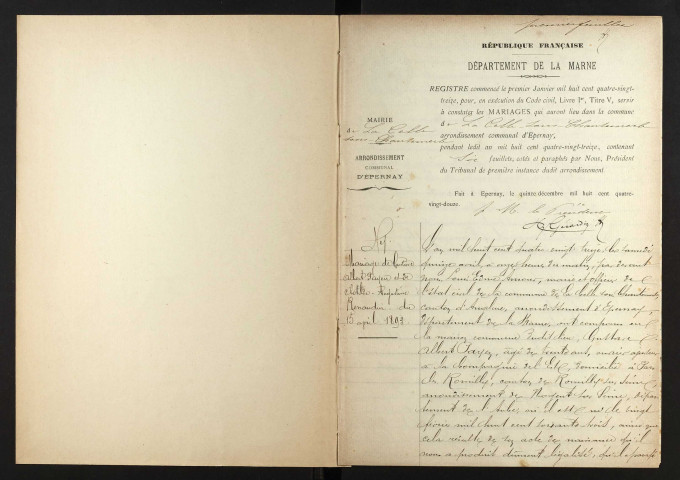 premier feuillet
RÉPUBLIQUE FRANÇAISE
DÉPARTEMENT DE LA MARNE
REGISTRE commencé le premier Janvier mil huit cent quatre-vingt-
treize, pour, en exécution du Code civil, Livre Ier, Titre V, servir
à constater les MARIAGES qui auront lieu dans la commune
de La Celle sous Chantemerle
arrondissement communal d'Epernay,
pendant ledit an mil huit cent quatre-vingt-treize, contenant
Six feuillets, cotés et paraphés par Nous, Président
du Tribunal de première instance dudit arrondissement
MAIRIE
de La Celle
sous Chantemerle
ARRONDISSEMENT
COMMUNAL
D'EPERNAY
Fait à Epernay, le quinze décembre mil huit cent quatre-
vingt-douze.
Le Président
Mariage de Gustave
Albert
et de
Clotilde
du
15 avril 1893
L'an mil huit cent quatre vingt treize le samedi
quinze avril, à onze heures du matin, par devant
nous Louis maire et officier de
l'état civil de la commune de La Celle sous Chantemerle
canton d'Anglure, arrondissement d'Epernay,
département de la Marne, ont comparu en
la maison commune Gustave
Albert âgé de trente ans,
à la Compagnie de l'Est, domicilié à
canton de Romilly sur Seine
arrondissement de Nogent sur Seine, dépar
tement de l'Aube où il est né le vingt
mil huit cent soixante trois, ainsi que
cela résulte de son acte de naissance qu'il
nous a produit dûment légalisé,